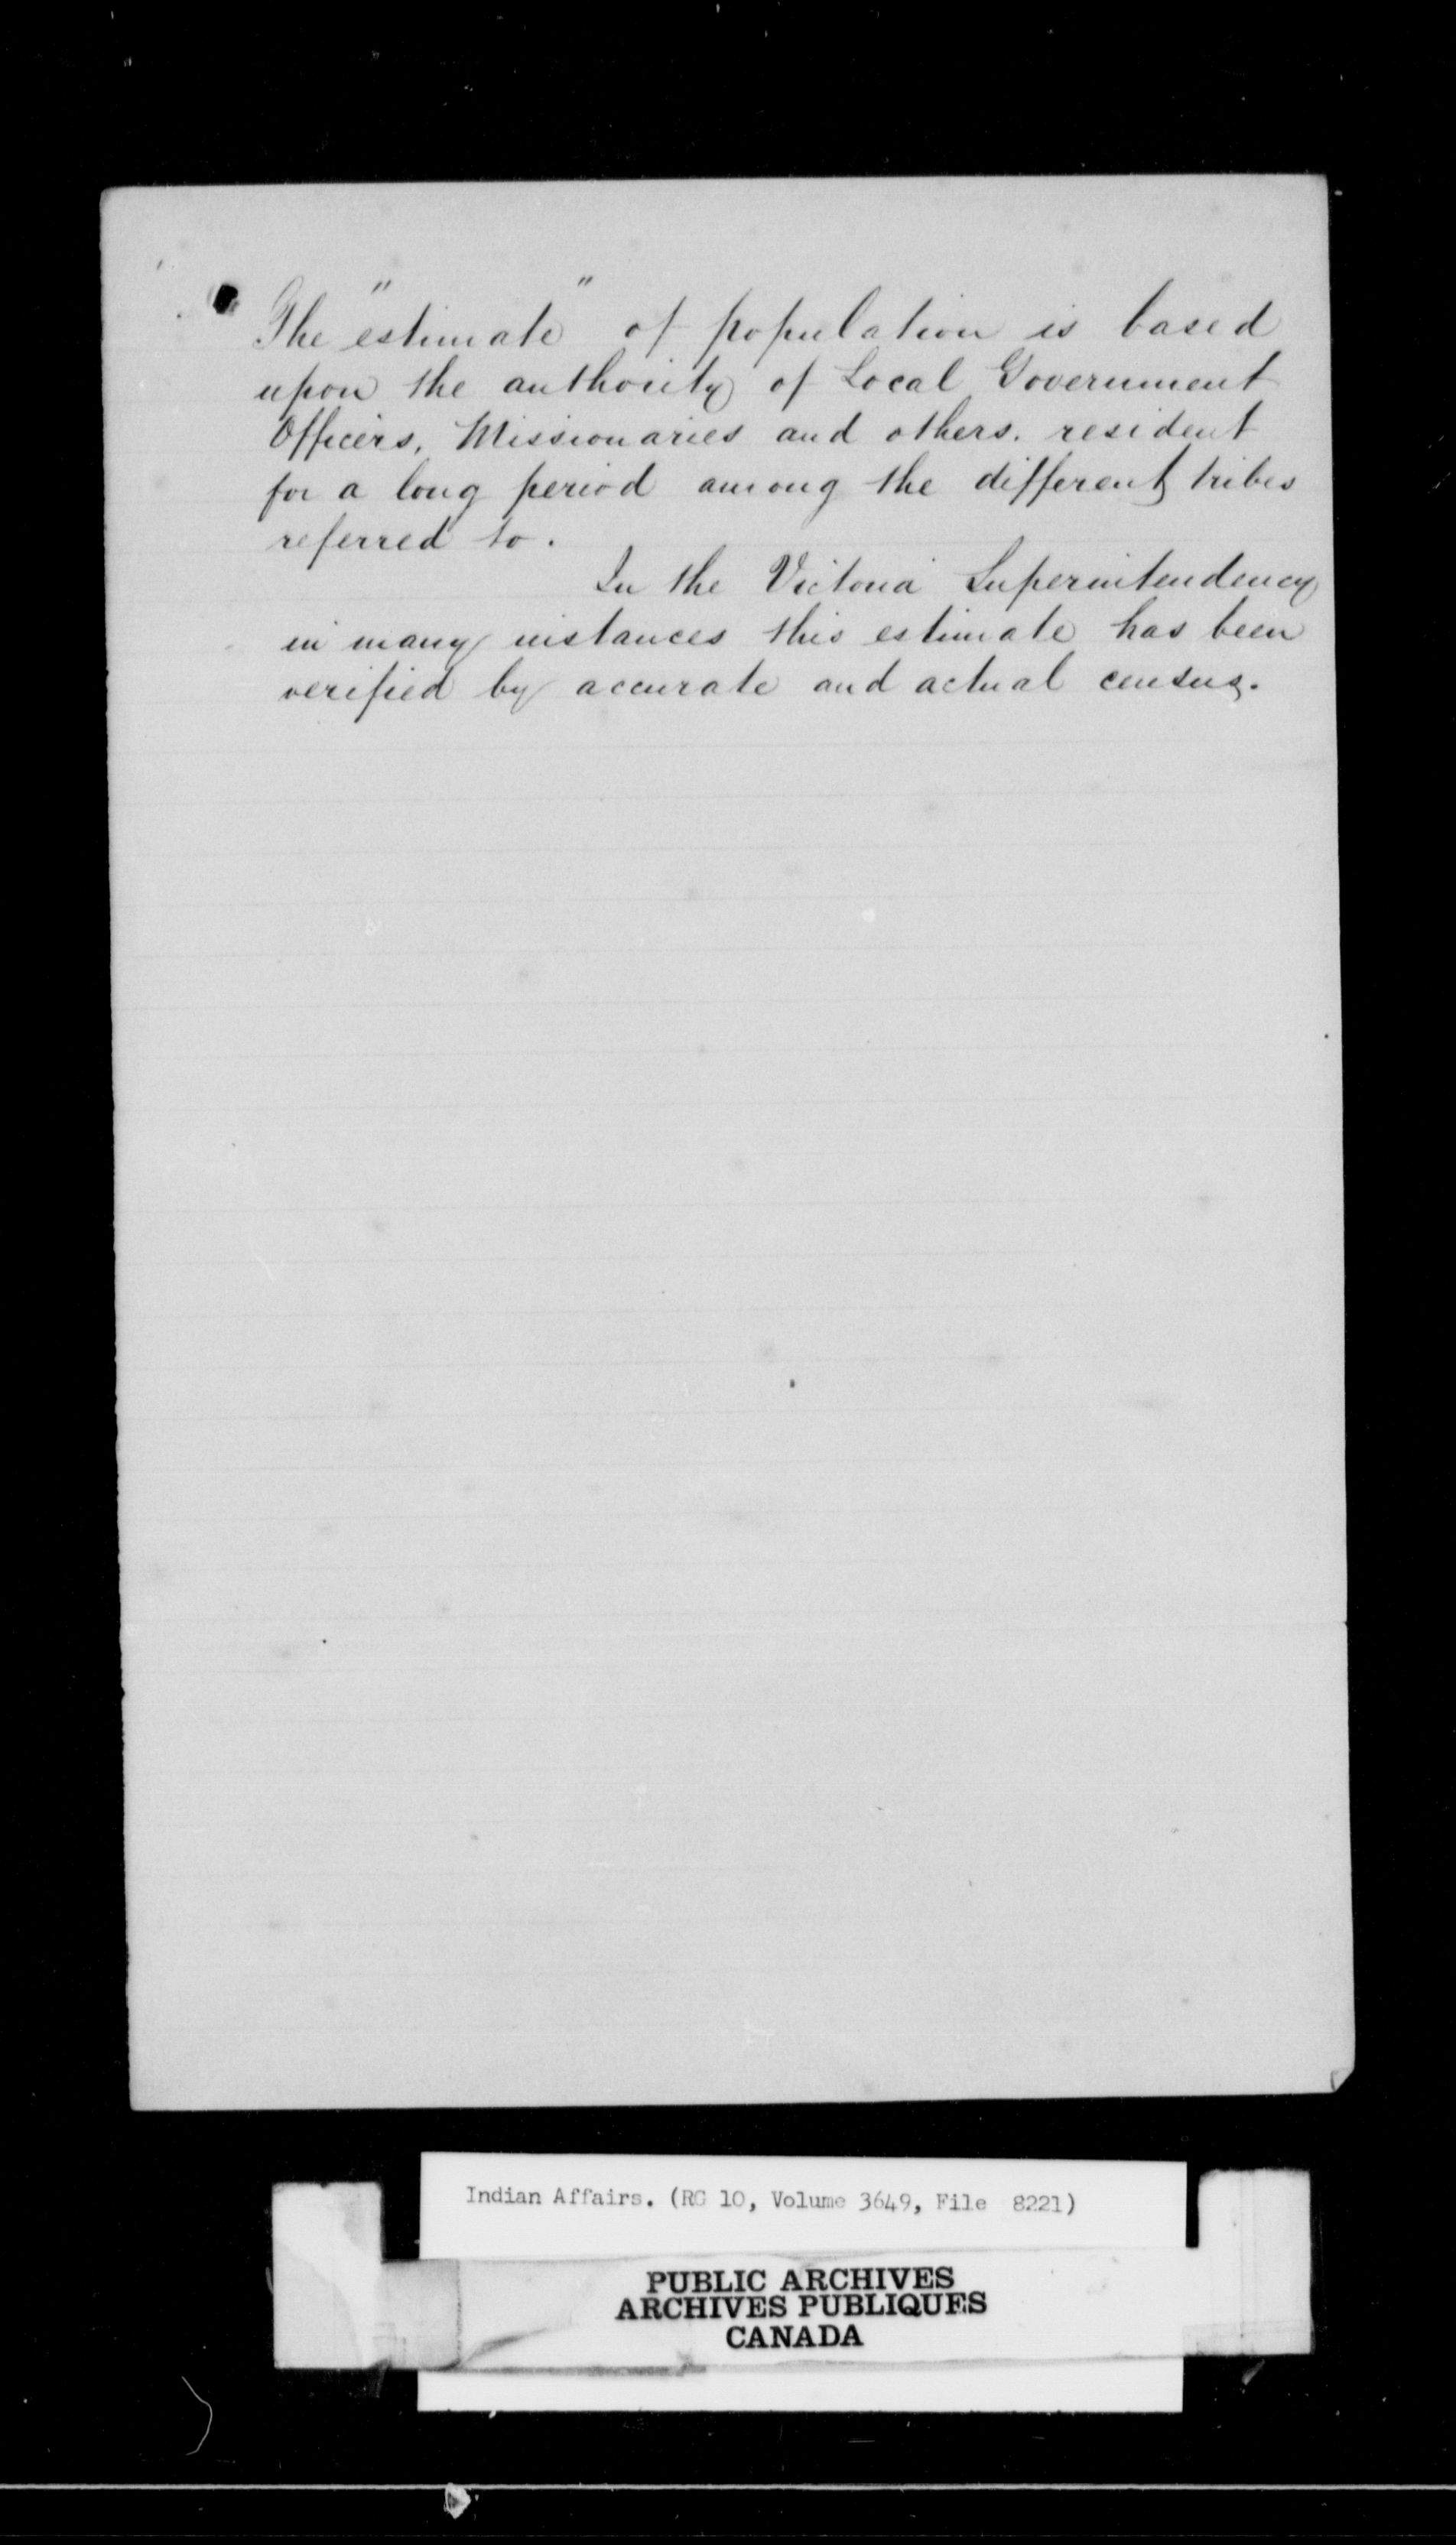 The "estimate" of population is based
upon the authority of Local Government
Officers, Missionaries and others. resident
for a long period among the different tribes
referred to.
In the Victoria Superintendency
in many instances this estimate has been
verified by accurate and actual census.
Indian Affairs. (RG 10, Volume 3649, File 8221)
PUBLIC ARCHIVES
ARCHIVES PUBLIQUES
CANADA